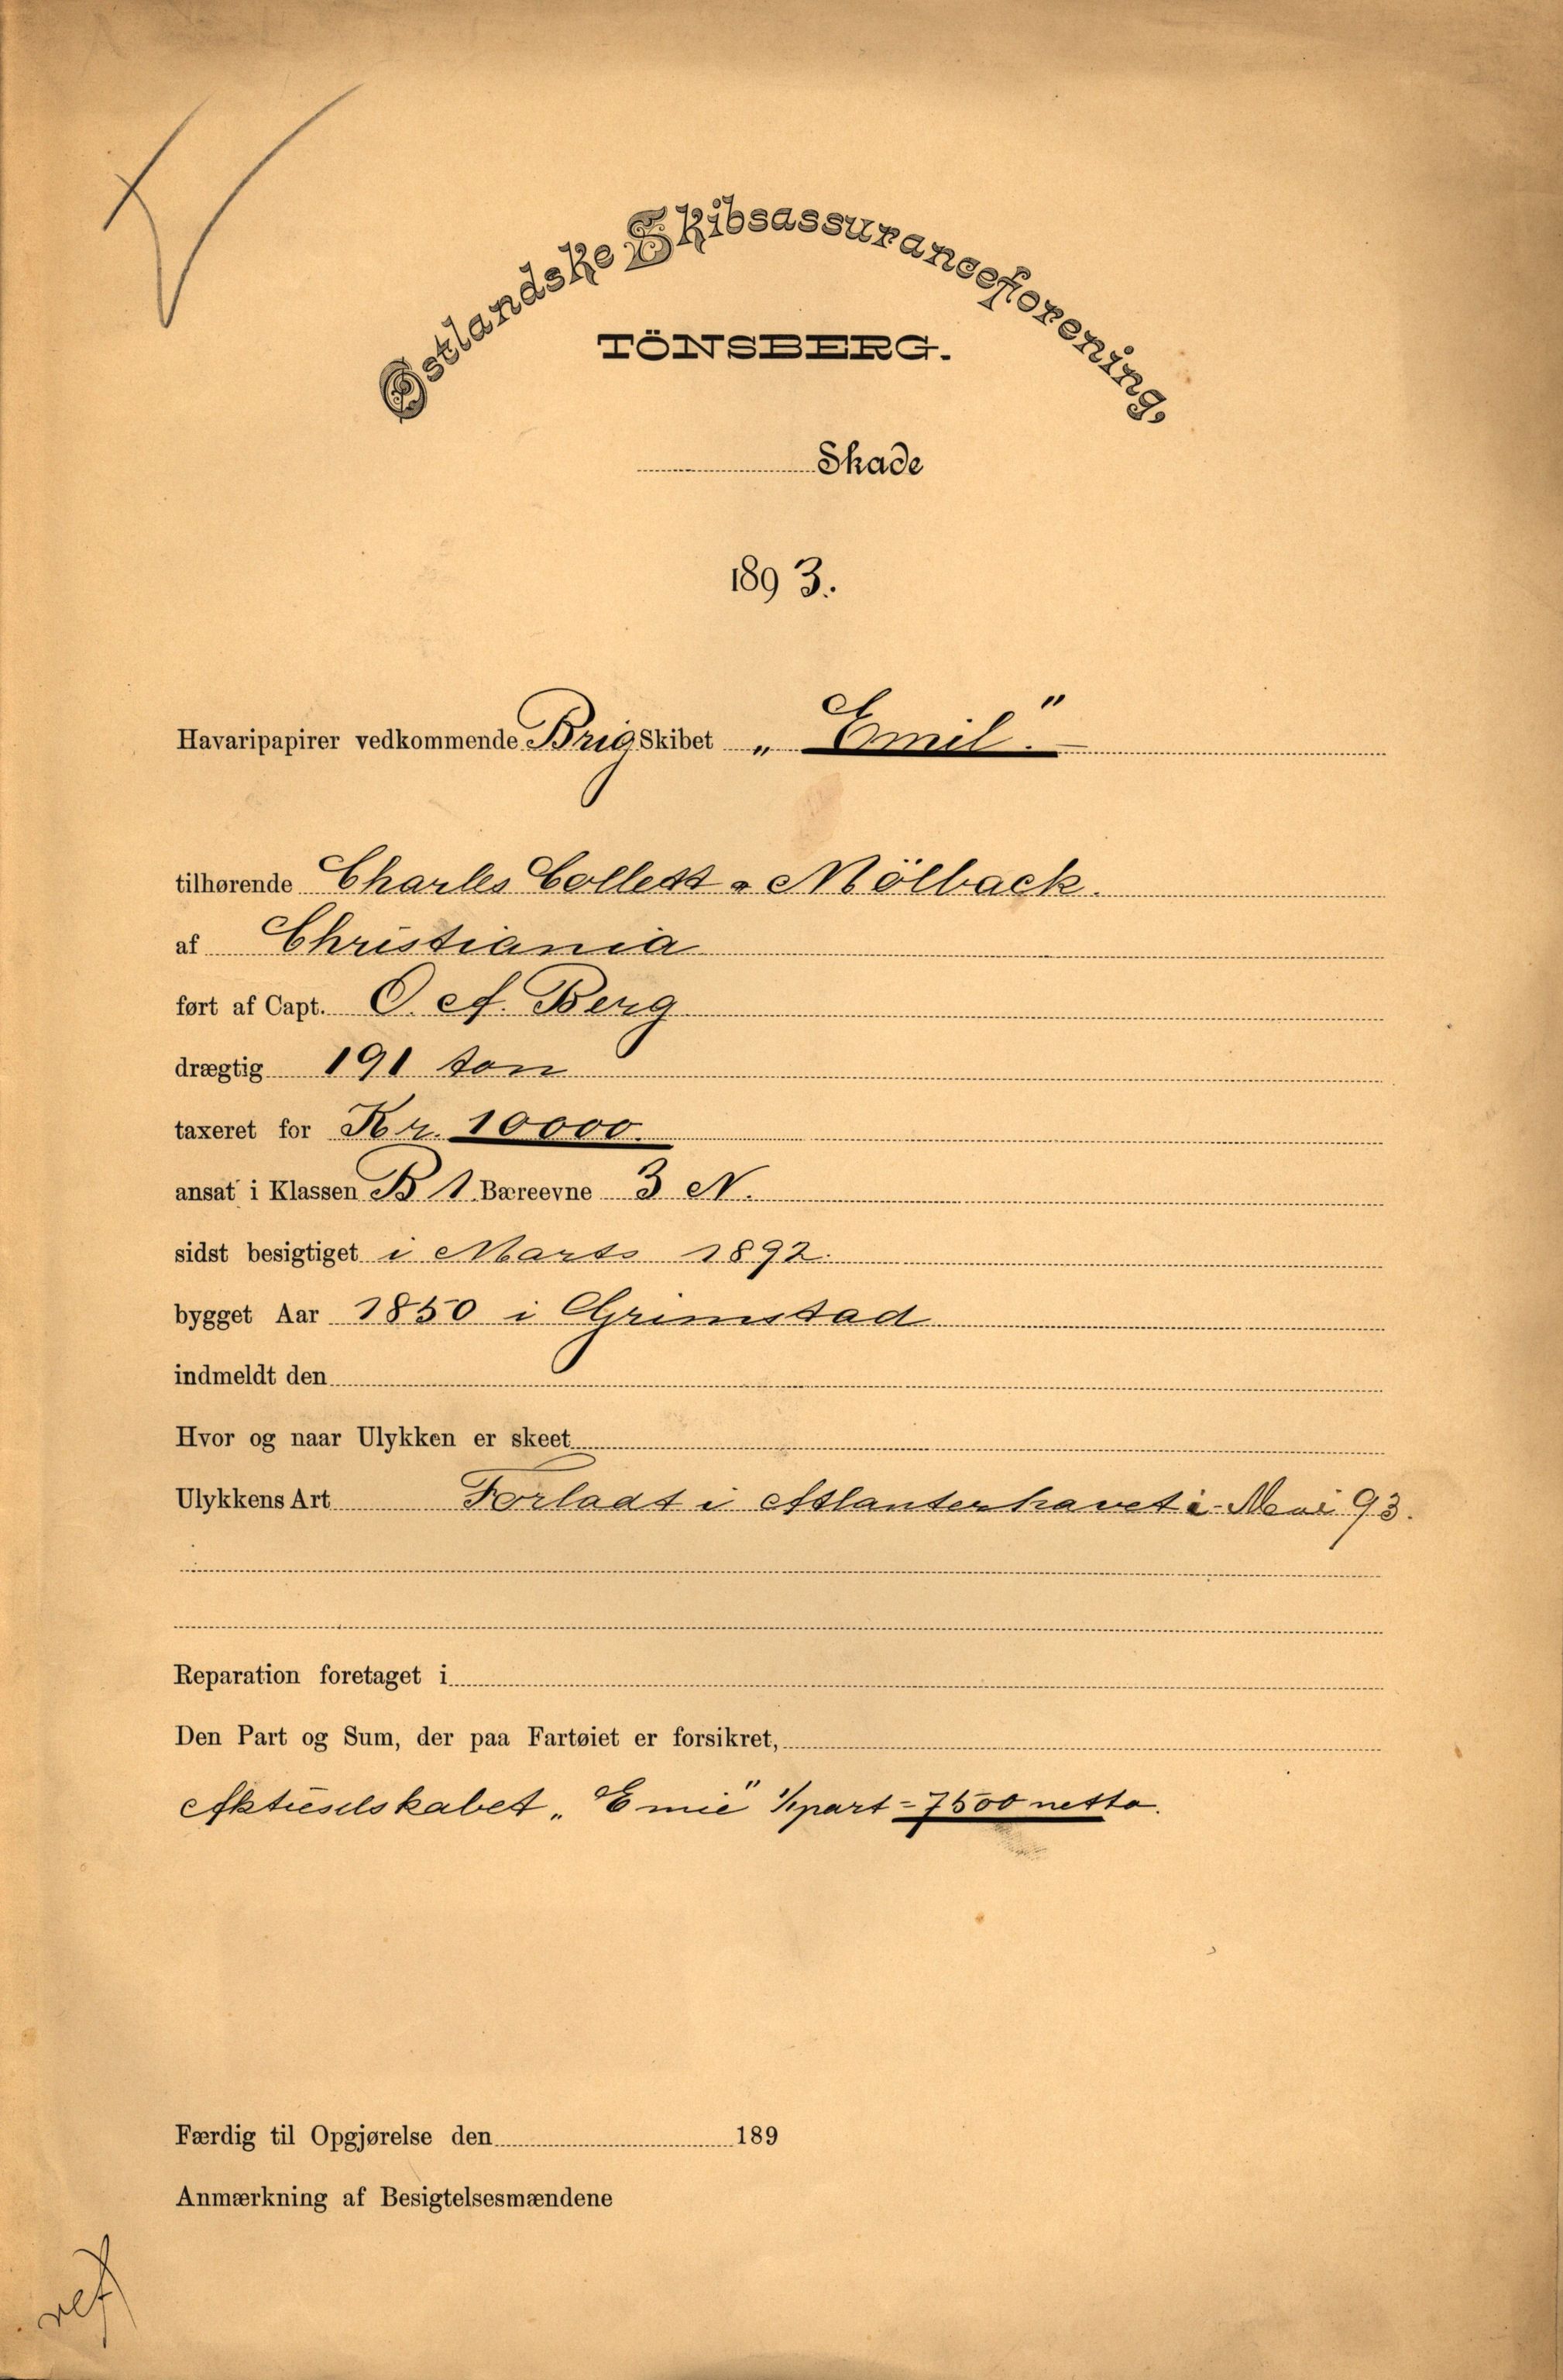 Østlandske Skibsassuranceforening,
TÖNSBERG.
Skade
1893.
Havaripapirer vedkommende Brig Skibet „Emil“.
tilhørende Charles Collett & Mölback.
af Christiania
ført af Capt. O. A. Berg
drægtig 191 ton
taxeret for Kr. 10000.
ansat i Klassen B 1 Bæreevne 3 N.
sidst besigtiget i Marts 1892.
bygget Aar 1850 i Grimstad
indmeldt den
Hvor og naar Ulykken er skeet
Ulykkens Art Forladt i Atlanterhavet i Mai 93.
Reparation foretaget i
Den Part og Sum, der paa Fartøiet er forsikret,
Aktieselskabet „Emil“ 1/1 part = 7500 netto.
Færdig til Opgjørelse den 189
Anmærkning af Besigtelsesmændene